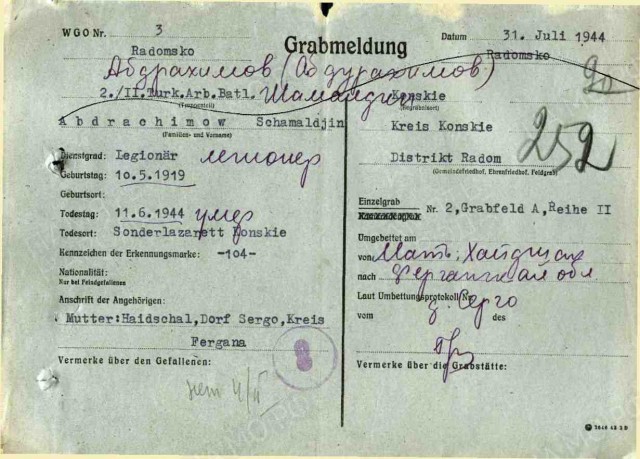 WGO Nr. 3
Radomsko
Grabmeldung
Datum 31. Juli 1944
Radomsko
Абдрахимов (Абдурахимов)
2./II.Turk.Arb.Batl.
(Truppenteil)
Abdrachimow Schamaldjin
(Familien- und Vorname)
Dienstgrad: Legionär легионер
Geburtstag: 10.5.1919
Geburtsort:
Todestag: 11.6.1944 умер
Todesort: Sonderlazarett Konskie
Kennzeichen der Erkennungsmarke: -104-
Nationalität:
Nur bei Feindgefallenen
Anschrift der Angehörigen:
Mutter:Haidschal,Dorf Sergo,Kreis
Fergana
Vermerke über den Gefallenen:
нет
8
Konskie
(Begräbnisort)
Kreis Konskie
252
Distrikt Radom
(Gemeindefriedhof, Ehrenfriedhof, Feldgrab)
Einzelgrab
Nr. 2,Grabfeld A,Reihe II
Umgebettet am
von Мать: Хайджал
nach Ферганская обл
Laut Umbettungsprotokoll Nr.
д. Серго
vom des
Vermerke über die Grabstätte: